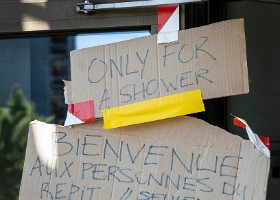 ONLY FOR
A SHOWER
BIENVENUE
AUX PERSONNES DU
REPIT